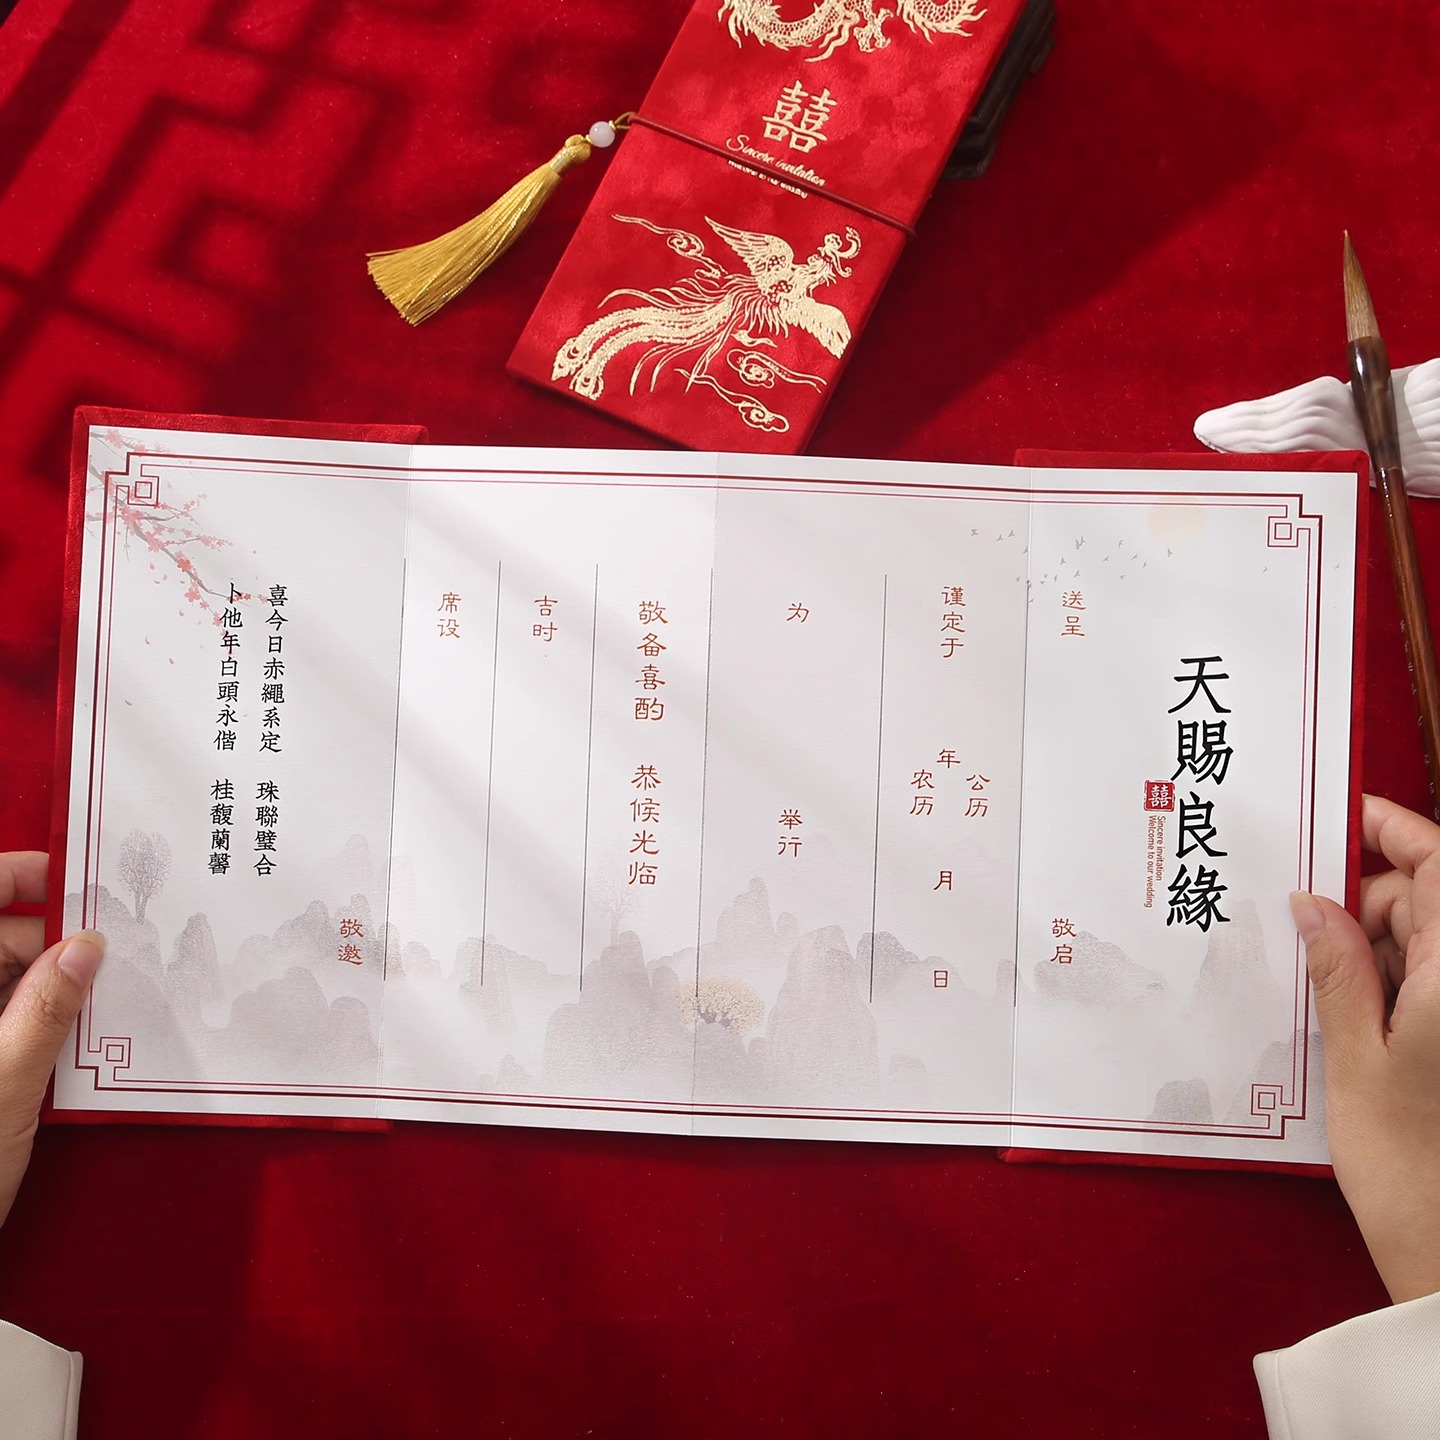 囍
Sincere invitation
天賜良緣
囍
Sincere invitation
Welcome to our wedding
送呈
敬启
谨定于
年
公历
农历
月
日
为
举行
敬备喜酌 恭候光临
吉时
席设
敬邀
喜今日赤繩系定 珠聯璧合
卜他年白頭永偕 桂馥蘭馨